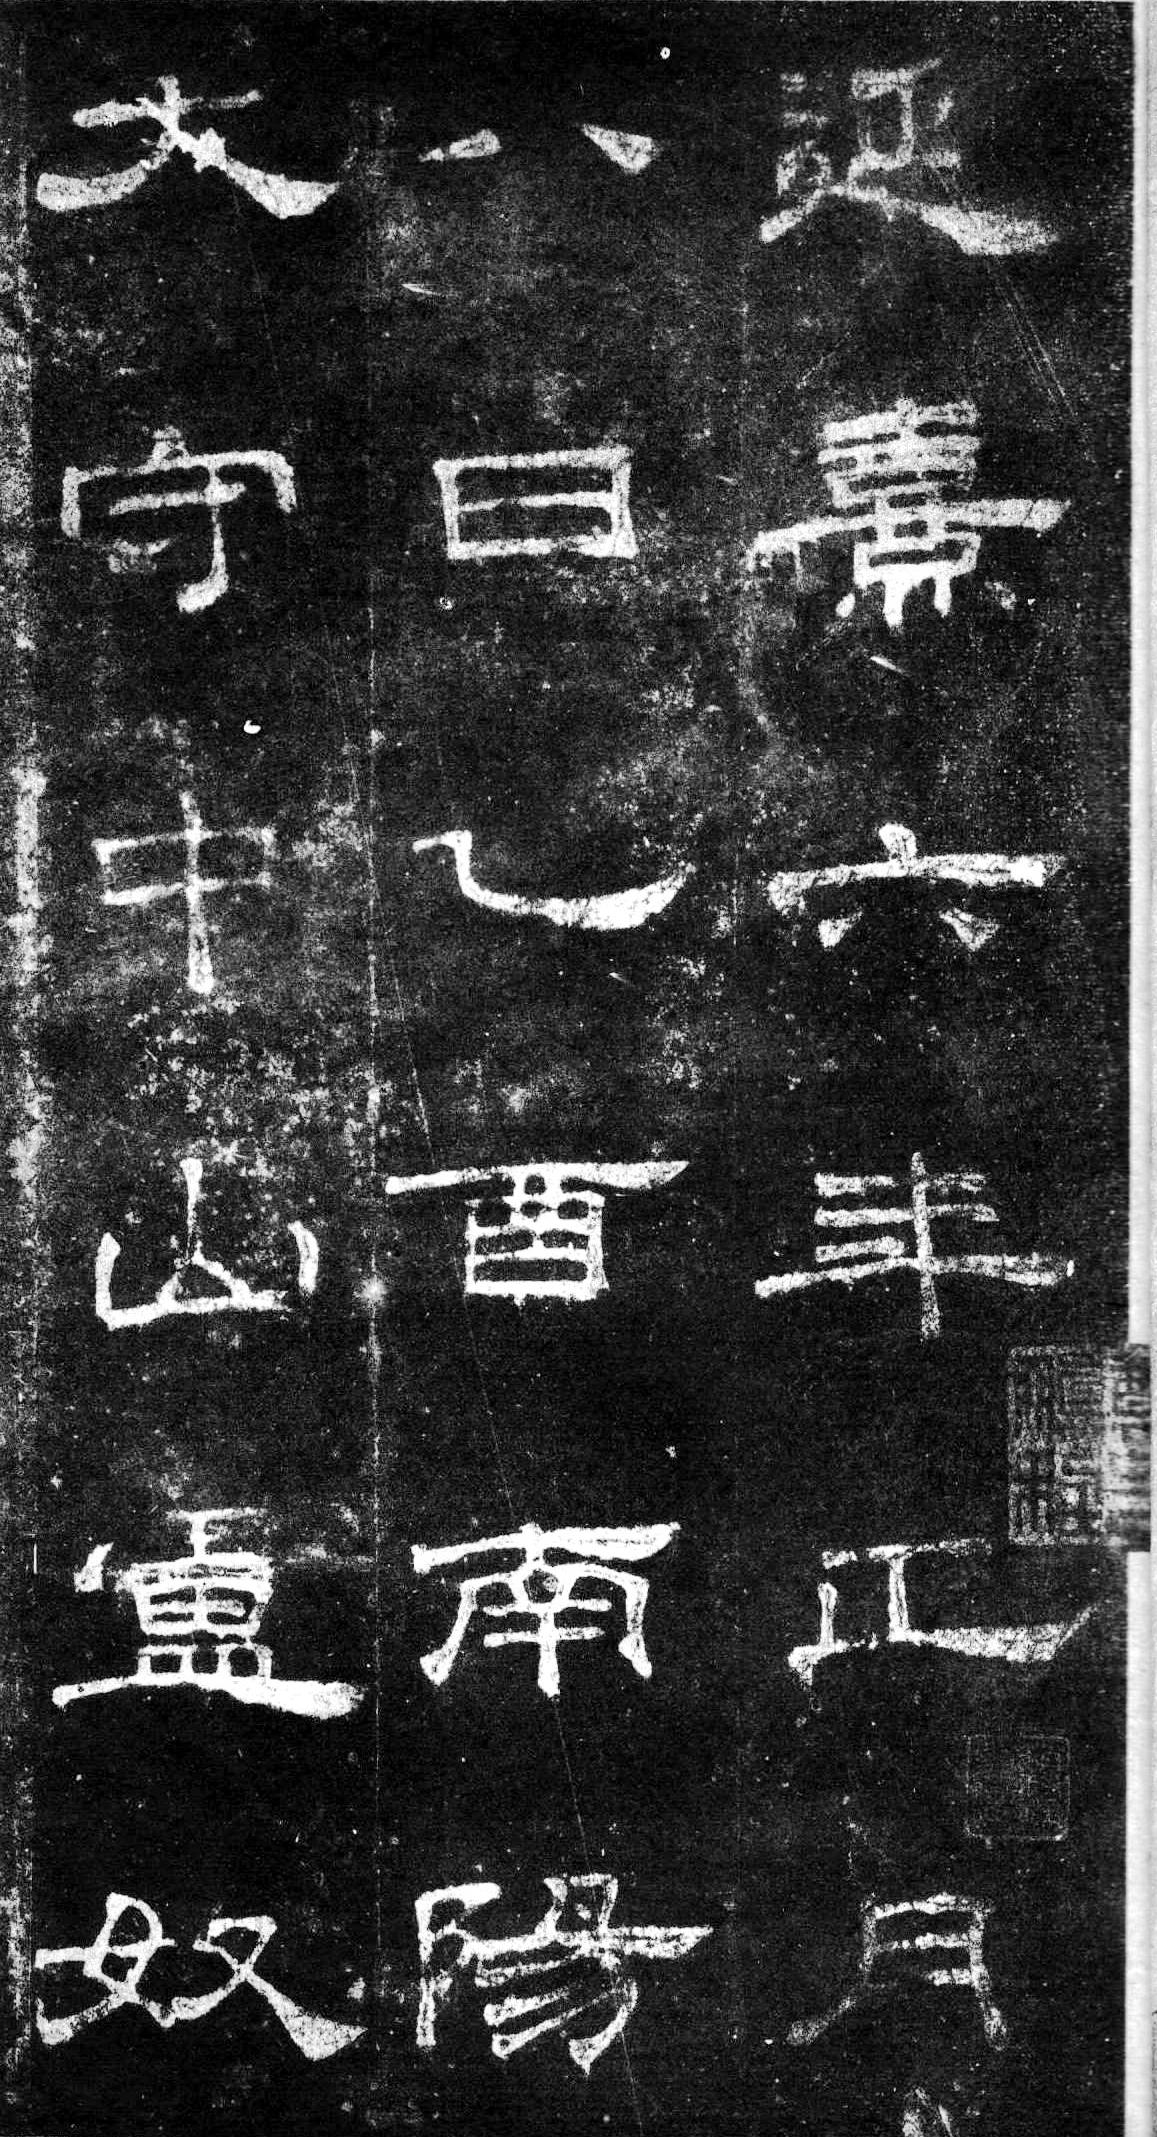 延熹六年正月
八日乙酉南陽
太守中山盧奴